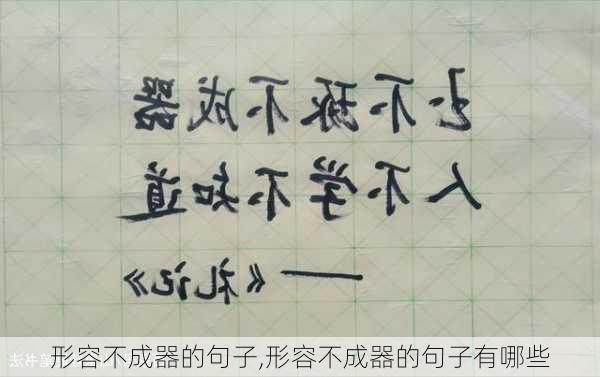 玉不琢不成器
人不学不知道
——《礼记》
形容不成器的句子,形容不成器的句子有哪些